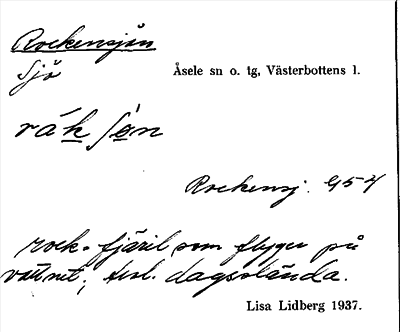 Rockensjön
Sjö
Åsele sn o. tg, Västerbottens l.
råk sön
Rockensj. G54
rock = fjäril som flyger på
vattnet; dagslända.
Lisa Lidberg 1937.